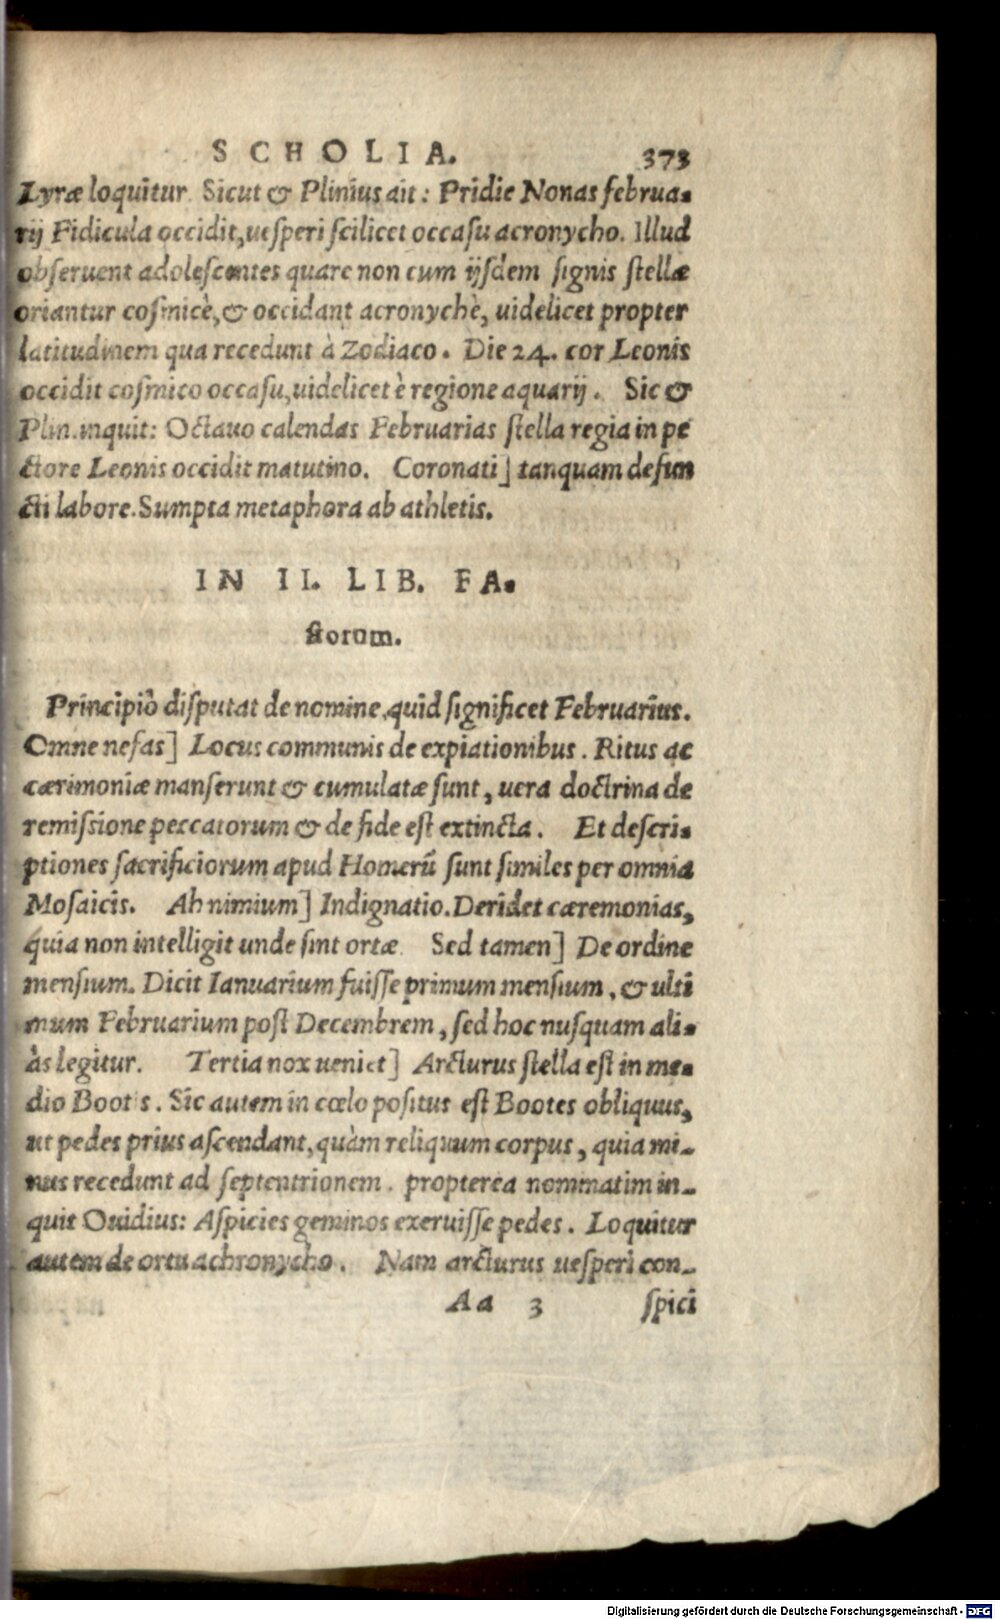 SCHOLIA. 373
Lyræ loquitur. Sicut & Plinius ait: Pridie Nonas februa-
rij Fidicula occidit, uesperi scilicet occasu acronycho. Illud
obseruent adolescentes quare non cum ijsdem signis stellæ
oriantur cosmicè, & occidant acronychè, uidelicet propter
latitudinem qua recedunt à Zodiaco. Die 24. cor Leonis
occidit cosmico occasu, uidelicet è regione aquarij. Sic &
Plin. inquit: Octauo calendas Februarias stella regia in pe
ctore Leonis occidit matutino. Coronati] tanquam defun
cti labore. Sumpta metaphora ab athletis.
IN II. LIB. FA-
storum.
Principiò disputat de nomine, quid significet Februarius.
Omne nefas] Locus communis de expiationibus. Ritus ac
cærimoniæ manserunt & cumulatæ sunt, uera doctrina de
remissione peccatorum & de fide est extincta. Et descri-
ptiones sacrificiorum apud Homerū sunt similes per omnia
Mosaicis. Ah nimium] Indignatio. Deridet cæremonias,
quia non intelligit unde sint ortæ. Sed tamen] De ordine
mensium. Dicit Ianuarium fuisse primum mensium, & ulti
mum Februarium post Decembrem, sed hoc nusquam ali-
às legitur. Tertia nox ueniet] Arcturus stella est in me-
dio Bootis. Sic autem in cœlo positus est Bootes obliquus,
ut pedes prius ascendant, quàm reliquum corpus, quia mi-
nus recedunt ad septentrionem. propterea nominatim in-
quit Ouidius: Aspicies geminos exeruisse pedes. Loquitur
autem de ortu achronycho. Nam arcturus uesperi con-
Aa 3 spici
Digitalisierung gefördert durch die Deutsche Forschungsgemeinschaft - DFG